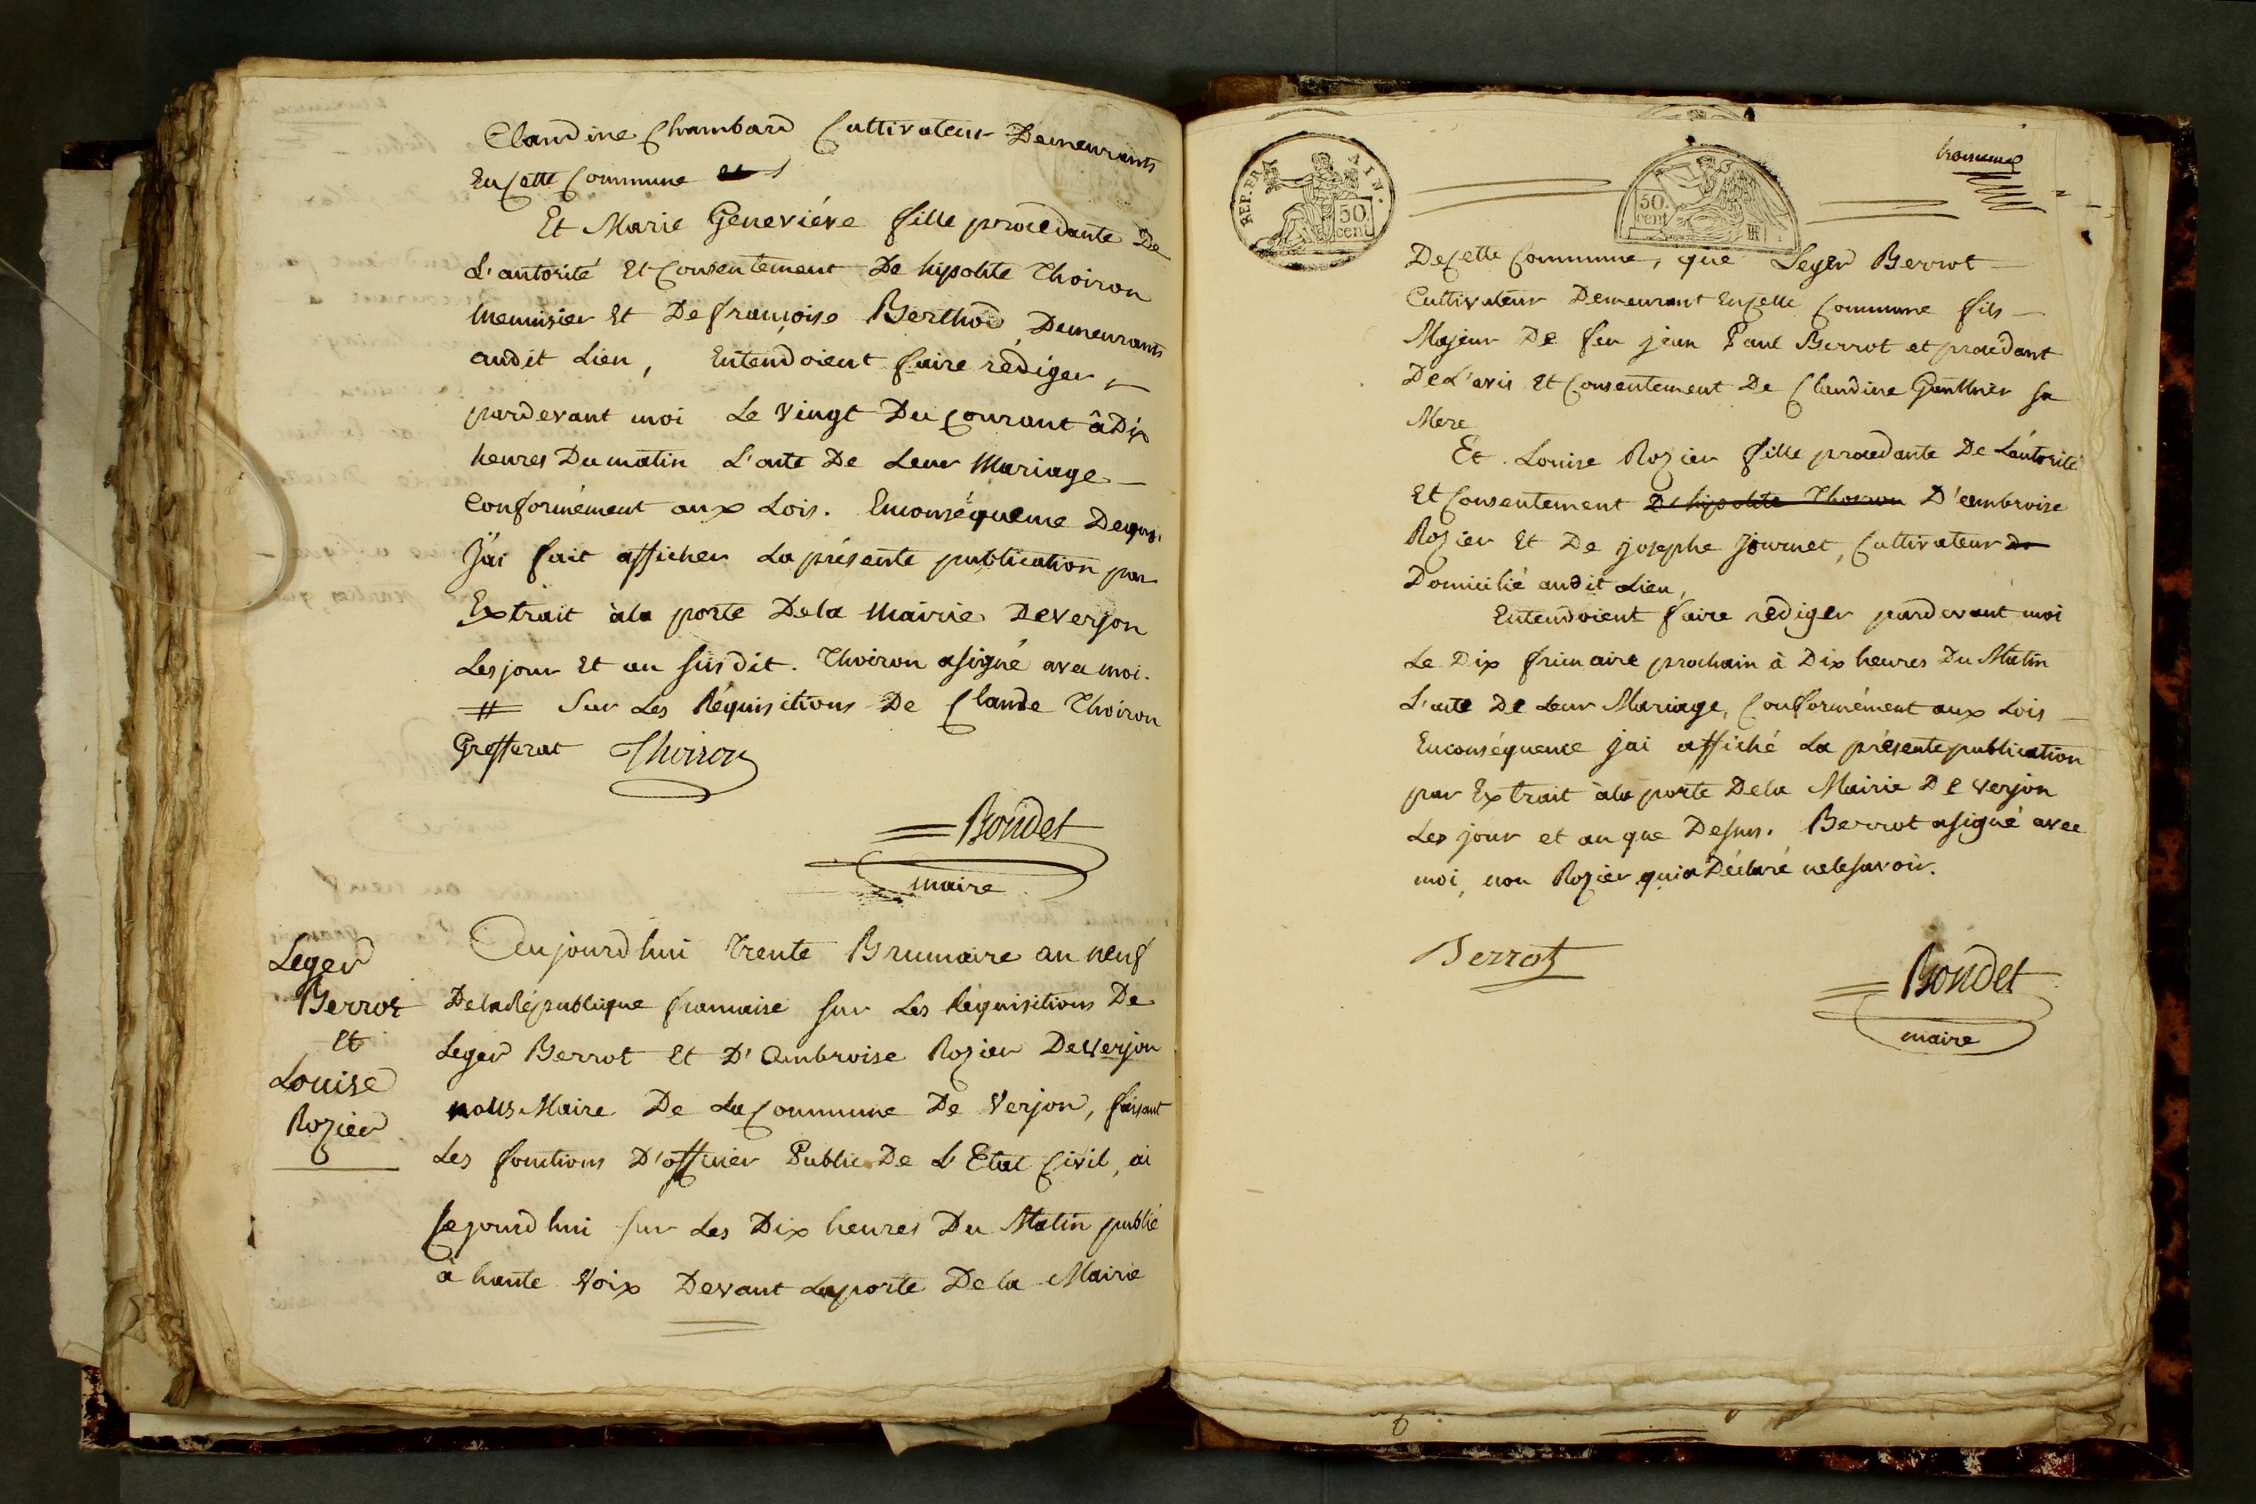 Claudine Chambard Cultivateur Demeurants
En Cette Commune et
Et Marie Geneviéve fille procédante De
L'autorité Et Consentement De hipolite Thoiron
menuisier Et De françoise Berthod Demeurants
audit Lieu, Entendoient faire rédiger,
pardevant moi Le Vingt Du Courant à Dix
heures Du matin L'acte De Leur Mariage
Conformément aux Lois. En conséquence Dequoi
J'ai fait afficher La présente publication par
Extrait àla porte Dela Mairie De Verjon
Les jour Et an susdit. Thoiron a signé avec moi.
# Sur Les Réquisitions De Claude Thoiron
Thoiron
Bondet
maire
Leger
Berrot
Et
Louise
Rozier
Aujourdhui Trente Brumaire an neuf
Dela République francaise sur Les Réquisitions De
Leger Berrot Et D'Ambroise Rozier De Verjon
nous Maire De La Commune De Verjon, faisant
Les fonctions D'officier Public De L'Etat Civil, ai
Cejourdhui sur Les Dix heures Du Matin publié
à haute Voix Devant La porte De la Mairie
REP. FRA. AIN.
50.
cent
50.
cent
troisieme
De Cette Commune, que Leger Berrot
Cultivateur Demeurant En Cette Commune fils
Majeur De feu jean Paul Berrot et procédant
De L'avis Et Consentement De Claudine Gauthier sa
Mere
Et Louise Rozier fille procedante De L'autorité
Et Consentement D'hipolite Thoiron D'ambroise
Rozier Et De josephe Journet, Cultivateur De
Domicilié audit Lieu,
Entendoient faire rédiger pardevant moi
Le Dix frimaire prochain à Dix heures Du Matin
L'acte De Leur Mariage, Conformément aux Lois
En conséquence jai affiché La présente publication
par Extrait àla porte Dela Mairie De Verjon
Les jour et an que Dessus. Berrot a signé avec
moi, non Rozier qui a Déclaré ne le savoir.
Berrot
Bondet
maire